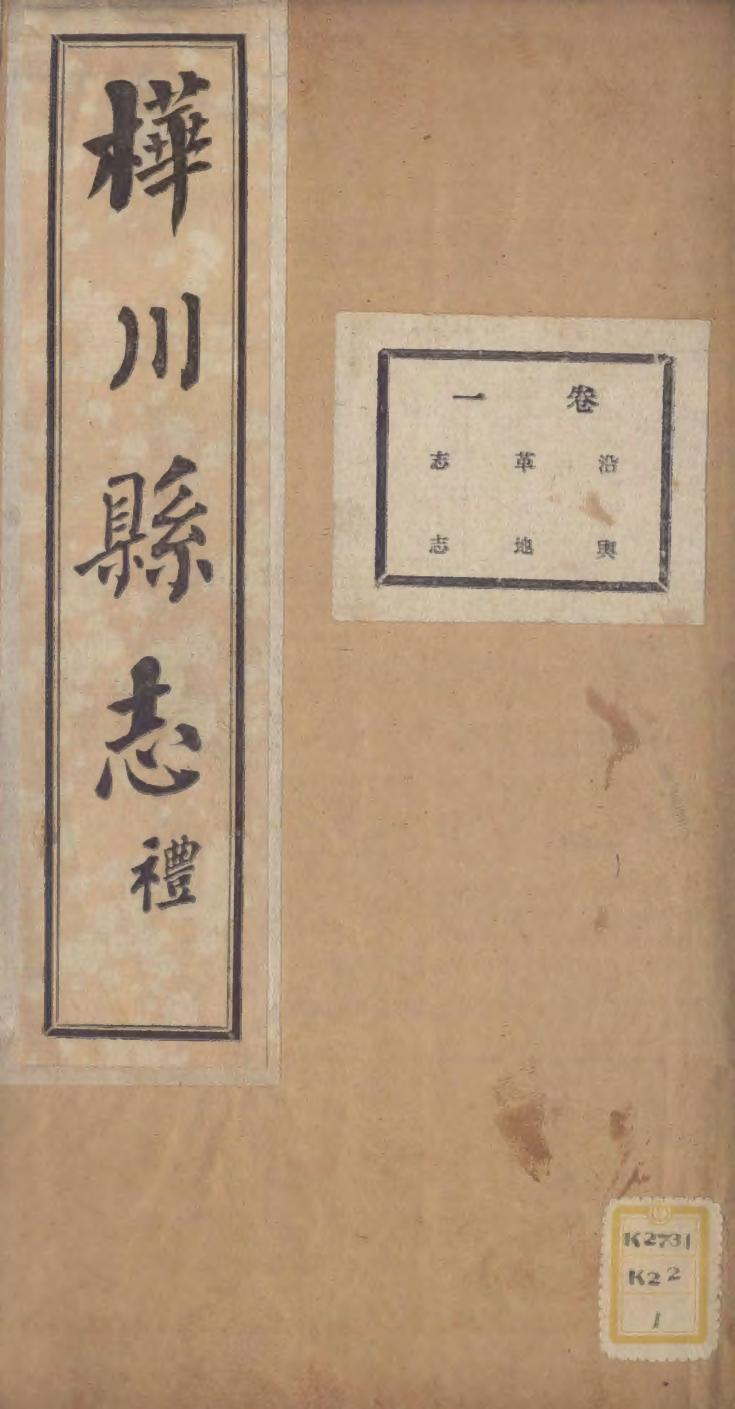 樺川縣志 禮
卷一
沿革志
輿地志
K2731
K22
1